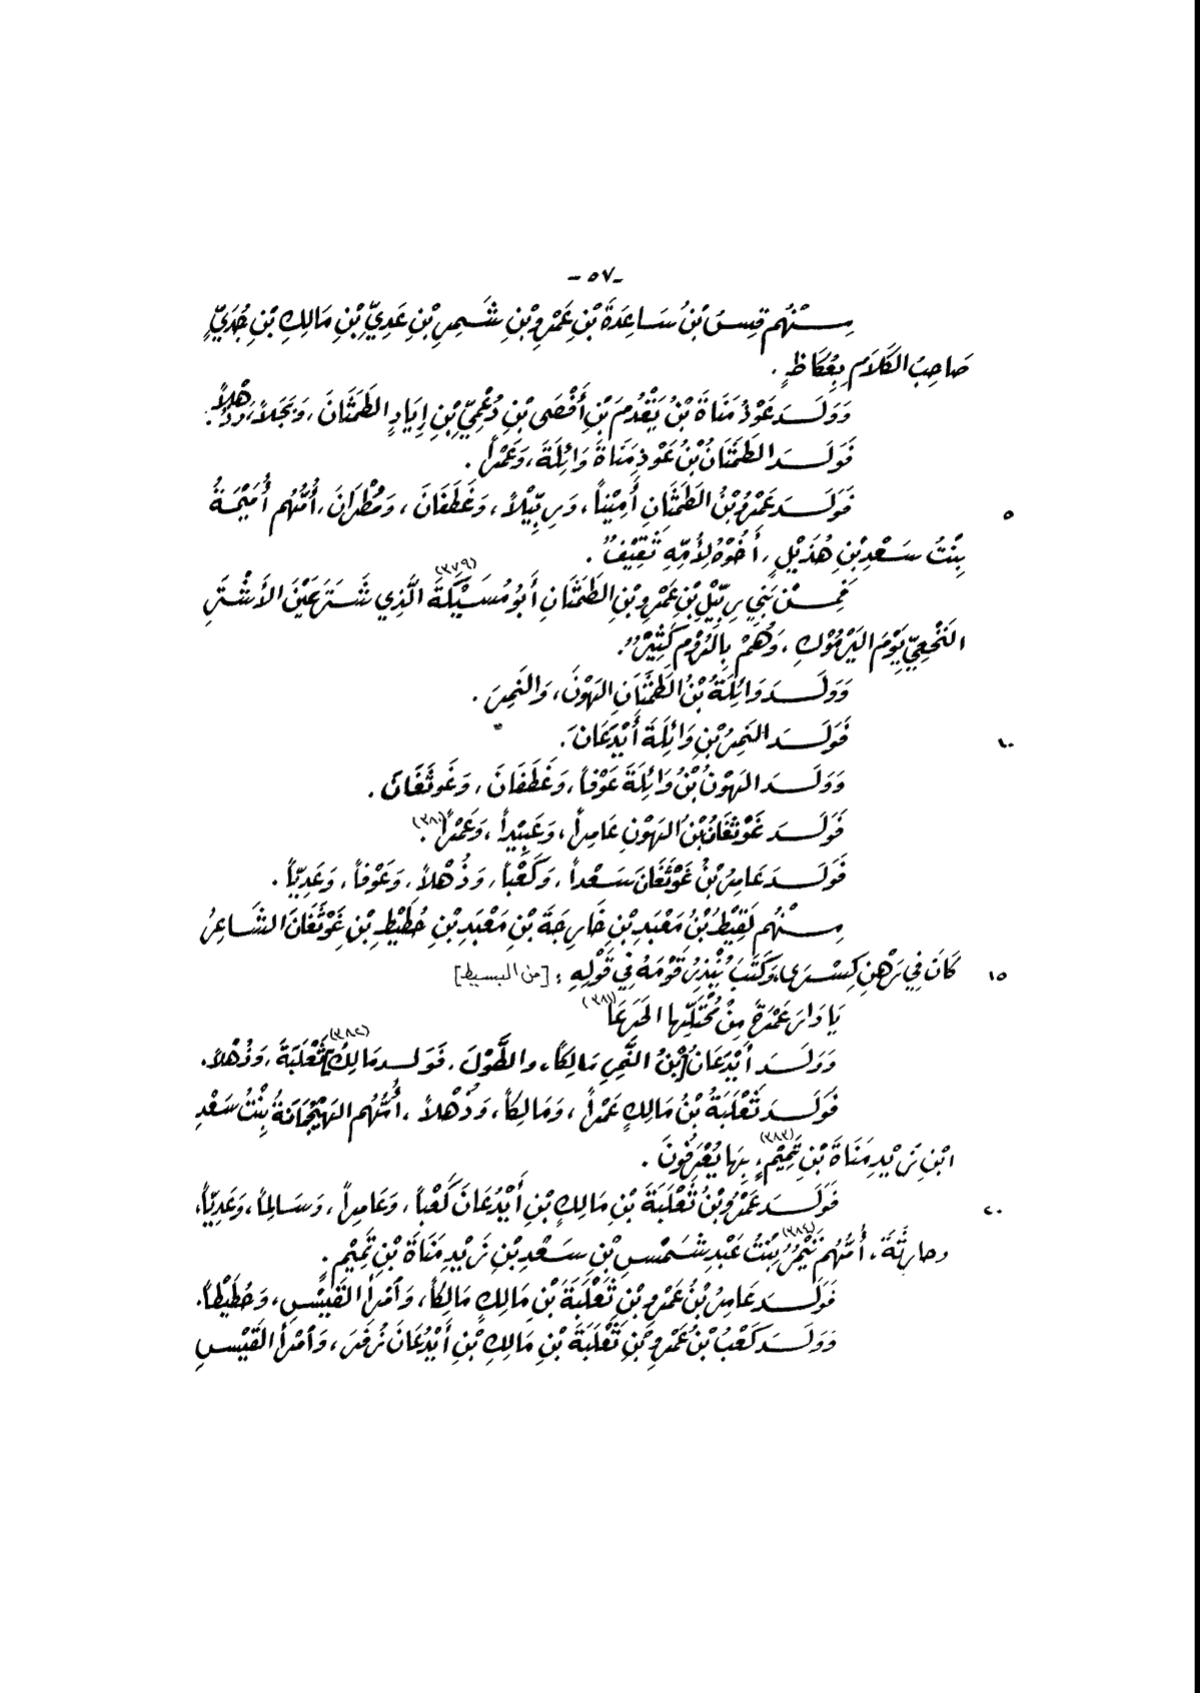 ـ ٥٧ ـ
مِنْهُم قِيسُ بْنُ سَاعِدَةَ بْنِ عَمْرِو بْنِ شَمِرِ بْنِ عَدِيِّ بْنِ مَالِكِ بْنِ جُدَيٍّ
صَاحِبُ الكَلَامِ بِعُكَاظٍ .
وَوَلَدَ عَوْذُ مَنَاةَ بْنُ يَقْدُمَ بْنِ أَفْصَى بْنِ دُعْمِيِّ بْنِ إِيَادٍ الطَّمَثَانَ، وَبَجَلاً، وَذُهْلاً .
فَوَلَدَ الطَّمَثَانُ بْنُ عَوْذِ مَنَاةَ وَائِلَةَ، وَعَمْراً .
٥ فَوَلَدَ عَمْرُو بْنُ الطَّمَثَانِ أَمِيْناً، وَرِبِّيْلاً، وَغَطَفَانَ، وَمُطْرَانَ، أُمُّهُم أُمَيْمَةُ
بِنْتُ سَعْدِ بْنِ هُذَيْلٍ، أَخُوْهُ لِأُمِّهِ ثَقِيْفٌ .
فَمِنْ بَنِي رِبِّيْلِ بْنِ عَمْرِو بْنِ الطَّمَثَانِ أَبُو مُسَيْكَةَ (٣٧٩) الَّذِي شَتَرَ عَيْنَ الأَشْتَرِ
النَّخَعِيِّ يَوْمَ اليَرْمُوْكِ، وَهُمْ بِالرُّوْمِ كَثِيْرٌ .
وَوَلَدَ وَائِلَةُ بْنُ الطَّمَثَانِ الهَوْنَ، وَالنَّمِرَ .
١٠ فَوَلَدَ النَّمِرُ بْنِ وَائِلَةَ أَيْدَعَانَ .
وَوَلَدَ الهَوْنُ بْنُ وَائِلَةَ عَوْفاً، وَغَطَفَانَ، وَغَوْثَغَانَ .
فَوَلَدَ غَوْثَغَانُ بْنُ الهَوْنِ عَامِراً، وَعَبِيْداً، وَعَمْراً (٣٨٠) .
فَوَلَدَ عَامِرُ بْنُ غَوْثَغَانَ سَعْداً، وَكَعْباً، وَذُهْلاً، وَعَوْفاً، وَعَدِيّاً .
مِنْهُم لَقِيْطُ بْنُ مَعْبَدِ بْنِ خَارِجَةَ بْنِ مَعْبَدِ بْنِ حُطَيْطِ بْنِ غَوْثَغَانَ الشَّاعِرُ
١٥ كَانَ فِي رَهْنِ كِسْرَى، وَكَتَبَ يُنْذِرُ قَوْمَهُ فِي قَوْلِهِ : [من البسيط]
يَا دَارَ عَمْرَةَ مِنْ مُحْتَلِّهَا الجَرَعَا (٣٨١)
وَوَلَدَ أَيْدَعَانُ بْنُ النَّمِرِ مَالِكاً، والطَّوْلَ، فَوَلَدَ مَالِكُ (٣٨٢) ثَعْلَبَةَ، وَذُهْلاً .
فَوَلَدَ ثَعْلَبَةُ بْنُ مَالِكٍ عَمْراً، وَمَالِكاً، وَذُهْلاً، أُمُّهُم الهَيْجُمَانَةُ بِنْتُ سَعْدِ
ابْنِ زَيْدِ مَنَاةَ بْنِ تَمِيْمٍ (٣٨٣) بِهَا يُعْرَفُونَ .
٢٠ فَوَلَدَ عَمْرُو بْنُ ثَعْلَبَةَ بْنِ مَالِكِ بْنِ أَيْدُعَانَ كَعْباً، وَعَامِراً، وَسَالِماً، وَعَدِيّاً،
وحارِثَةَ، أُمُّهُم (٣٨٤) بِنْتُ عَبْدِ شَمْسِ بْنِ سَعْدِ بْنِ زَيْدِ مَنَاةَ بْنِ تَمِيْمٍ .
فَوَلَدَ عَامِرُ بْنُ عَمْرِو بْنِ ثَعْلَبَةَ بْنِ مَالِكٍ مَالِكاً، وَامْرأَ القَيْسِ، وَحُطَيْطاً .
وَوَلَدَ كَعْبُ بْنُ عَمْرِو بْنِ ثَعْلَبَةَ بْنِ مَالِكِ بْنِ أَيْدُعَانَ زُفَرَ، وَامْرأَ القَيْسِ